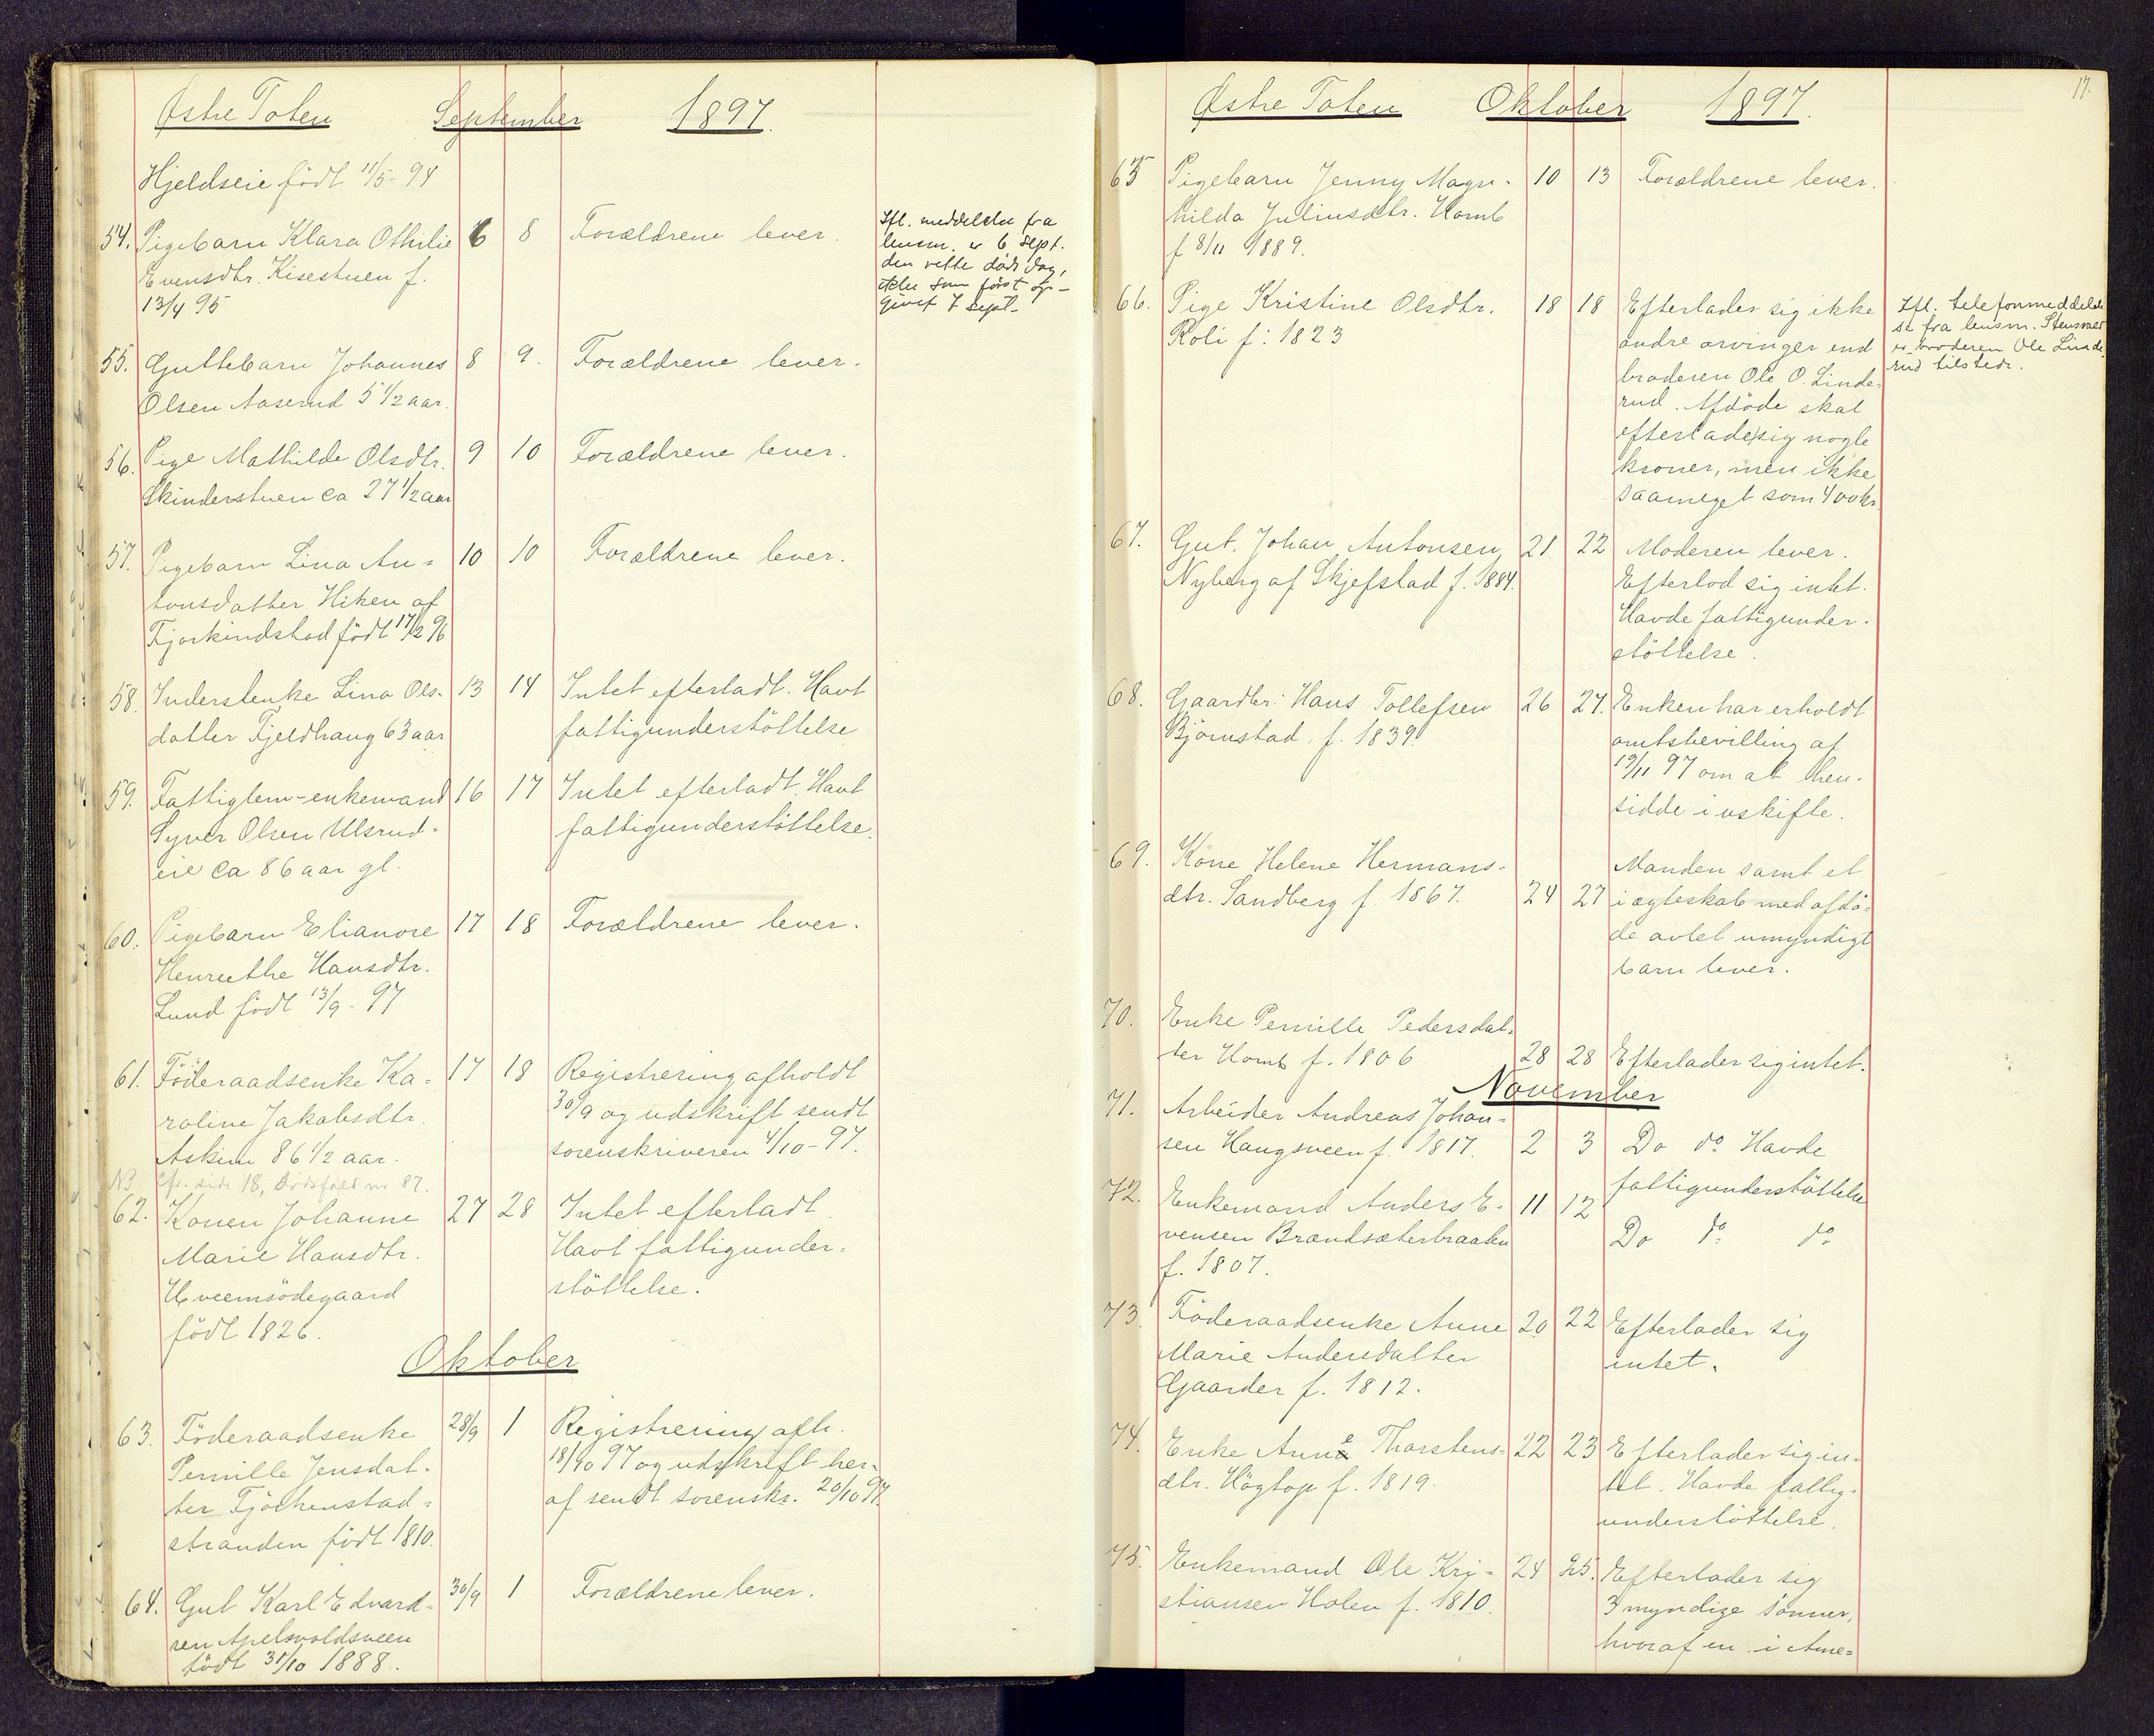 Østre Toten September 1897.
Hjeldseie født 11/5-94
54. Pigebarn Klara Othilie 6 8 Forældrene lever.
Evensdtr. Kisestuen f.
13/4 95
Ifl. meddelelse fra
lensm. er 6 sept.
den rette døds dag,
ikke som først op-
givet 7 sept.
55. Guttebarn Johannes 8 9. Forældrene lever.
Olsen Aaserud 5 1/2 aar.
56. Pige Mathilde Olsdtr. 9 10 Forældrene lever.
Skinderstuen ca 27 1/2 aar
57. Pigebarn Lina An= 10 10 Forældrene lever.
tonsdatter Hiken af
Fjorkindstad født 17/2 96
58. Inderstenke Lina Ols- 13 14 Intet efterladt. Havt
datter Fjeldhaug 63 aar fattigunderstöttelse
59. Fattiglem-enkemand 16 17 Intet efterladt. Havt
Syver Olsen Ulsrud- fattigunderstöttelse.
eie ca 86 aar gl.
60. Pigebarn Elianore 17 18 Forældrene lever.
Henreethe Hansdtr.
Lund født 13/9-97
61. Föderaadsenke Ka= 17 18 Registrering afholdt
roline Jakobsdtr. 30/9 og udskrift sendt
Askim 86 1/2 aar. sorenskriveren 4/10-97.
NB. Cfr. side 18, dödsfald nr 87.
62. Konen Johanne 27 28 Intet efterladt
Marie Hansdtr. Havt fattigunder=
Hveemsödegaard stöttelse.
født 1826.
Oktober
63. Föderaadsenke 28/9 1 Registrering afh.
Pernille Jensdat- 18/10 97 og udskrift her-
ter Fjöshenstad= af sendt sorenskr. 20/10 97.
stranden födt 1810.
64. Gut Karl Edvard- 30/9 1 Forældrene lever.
sen Apelsvoldsveen
födt 31/10 1888.
17.
Østre Toten Oktober 1897.
65 Pigebarn Jenny Magn- 10 13 Forældrene lever.
hilda Juliusdtr. Homb
f 8/11 1889.
66. Pige Kristine Olsdtr. 18 18 Efterlader sig ikke
Roli f: 1823 andre arvinger end
broderen Ole O. Linde-
rud. Afdöde skal
efterlade sig nogle
kroner, men ikke
saameget som 400 kr.
Ifl. telefonmeddelel-
se fra lensm. Stensvold
er broderen Ole Linde-
rud tilstede.
67. Gut. Johan Antonsen 21 22 Moderen lever.
Nyberg af Skjefstad f. 1884. Efterlod sig intet.
Havde fattigunder-
stöttelse.
68. Gaardbr: Hans Tollefsen 26 27. Enken har erholdt
Björnstad f. 1839. amtsbevilling af
19/11 97 om at hen-
sidde i uskifte.
69. Kone Helene Hermans- Manden samt et
dtr. Sandberg f. 1867. 24 27 i ægteskab med afdö-
de avlet umyndigt
barn lever.
70. Enke Pernille Pedersdat-
ter Homb f. 1806 28 28 Efterlader sig intet.
November
71. Arbeider Andreas Johan-
sen Haugsveen f. 1817. 2 3 Do do Havde
fattigunderstöttelse
72. Enkemand Anders E- 11 12
vensen Brandsæterbraaten Do do do
f. 1807.
73. Föderaadsenke Anne 20 22 Efterlader sig
Marie Andersdatter intet.
Gaarder f. 1812.
74. Enke Anne Thorstens- 22 23 Efterlader sig in-
dtr. Högtop f. 1819. tet. Havde fattig-
understöttelse.
75. Enkemand Ole Kri- 24 25. Efterlader sig
stiansen Holen f. 1810. 3 myndige sönner,
hvoraf en i Ame=